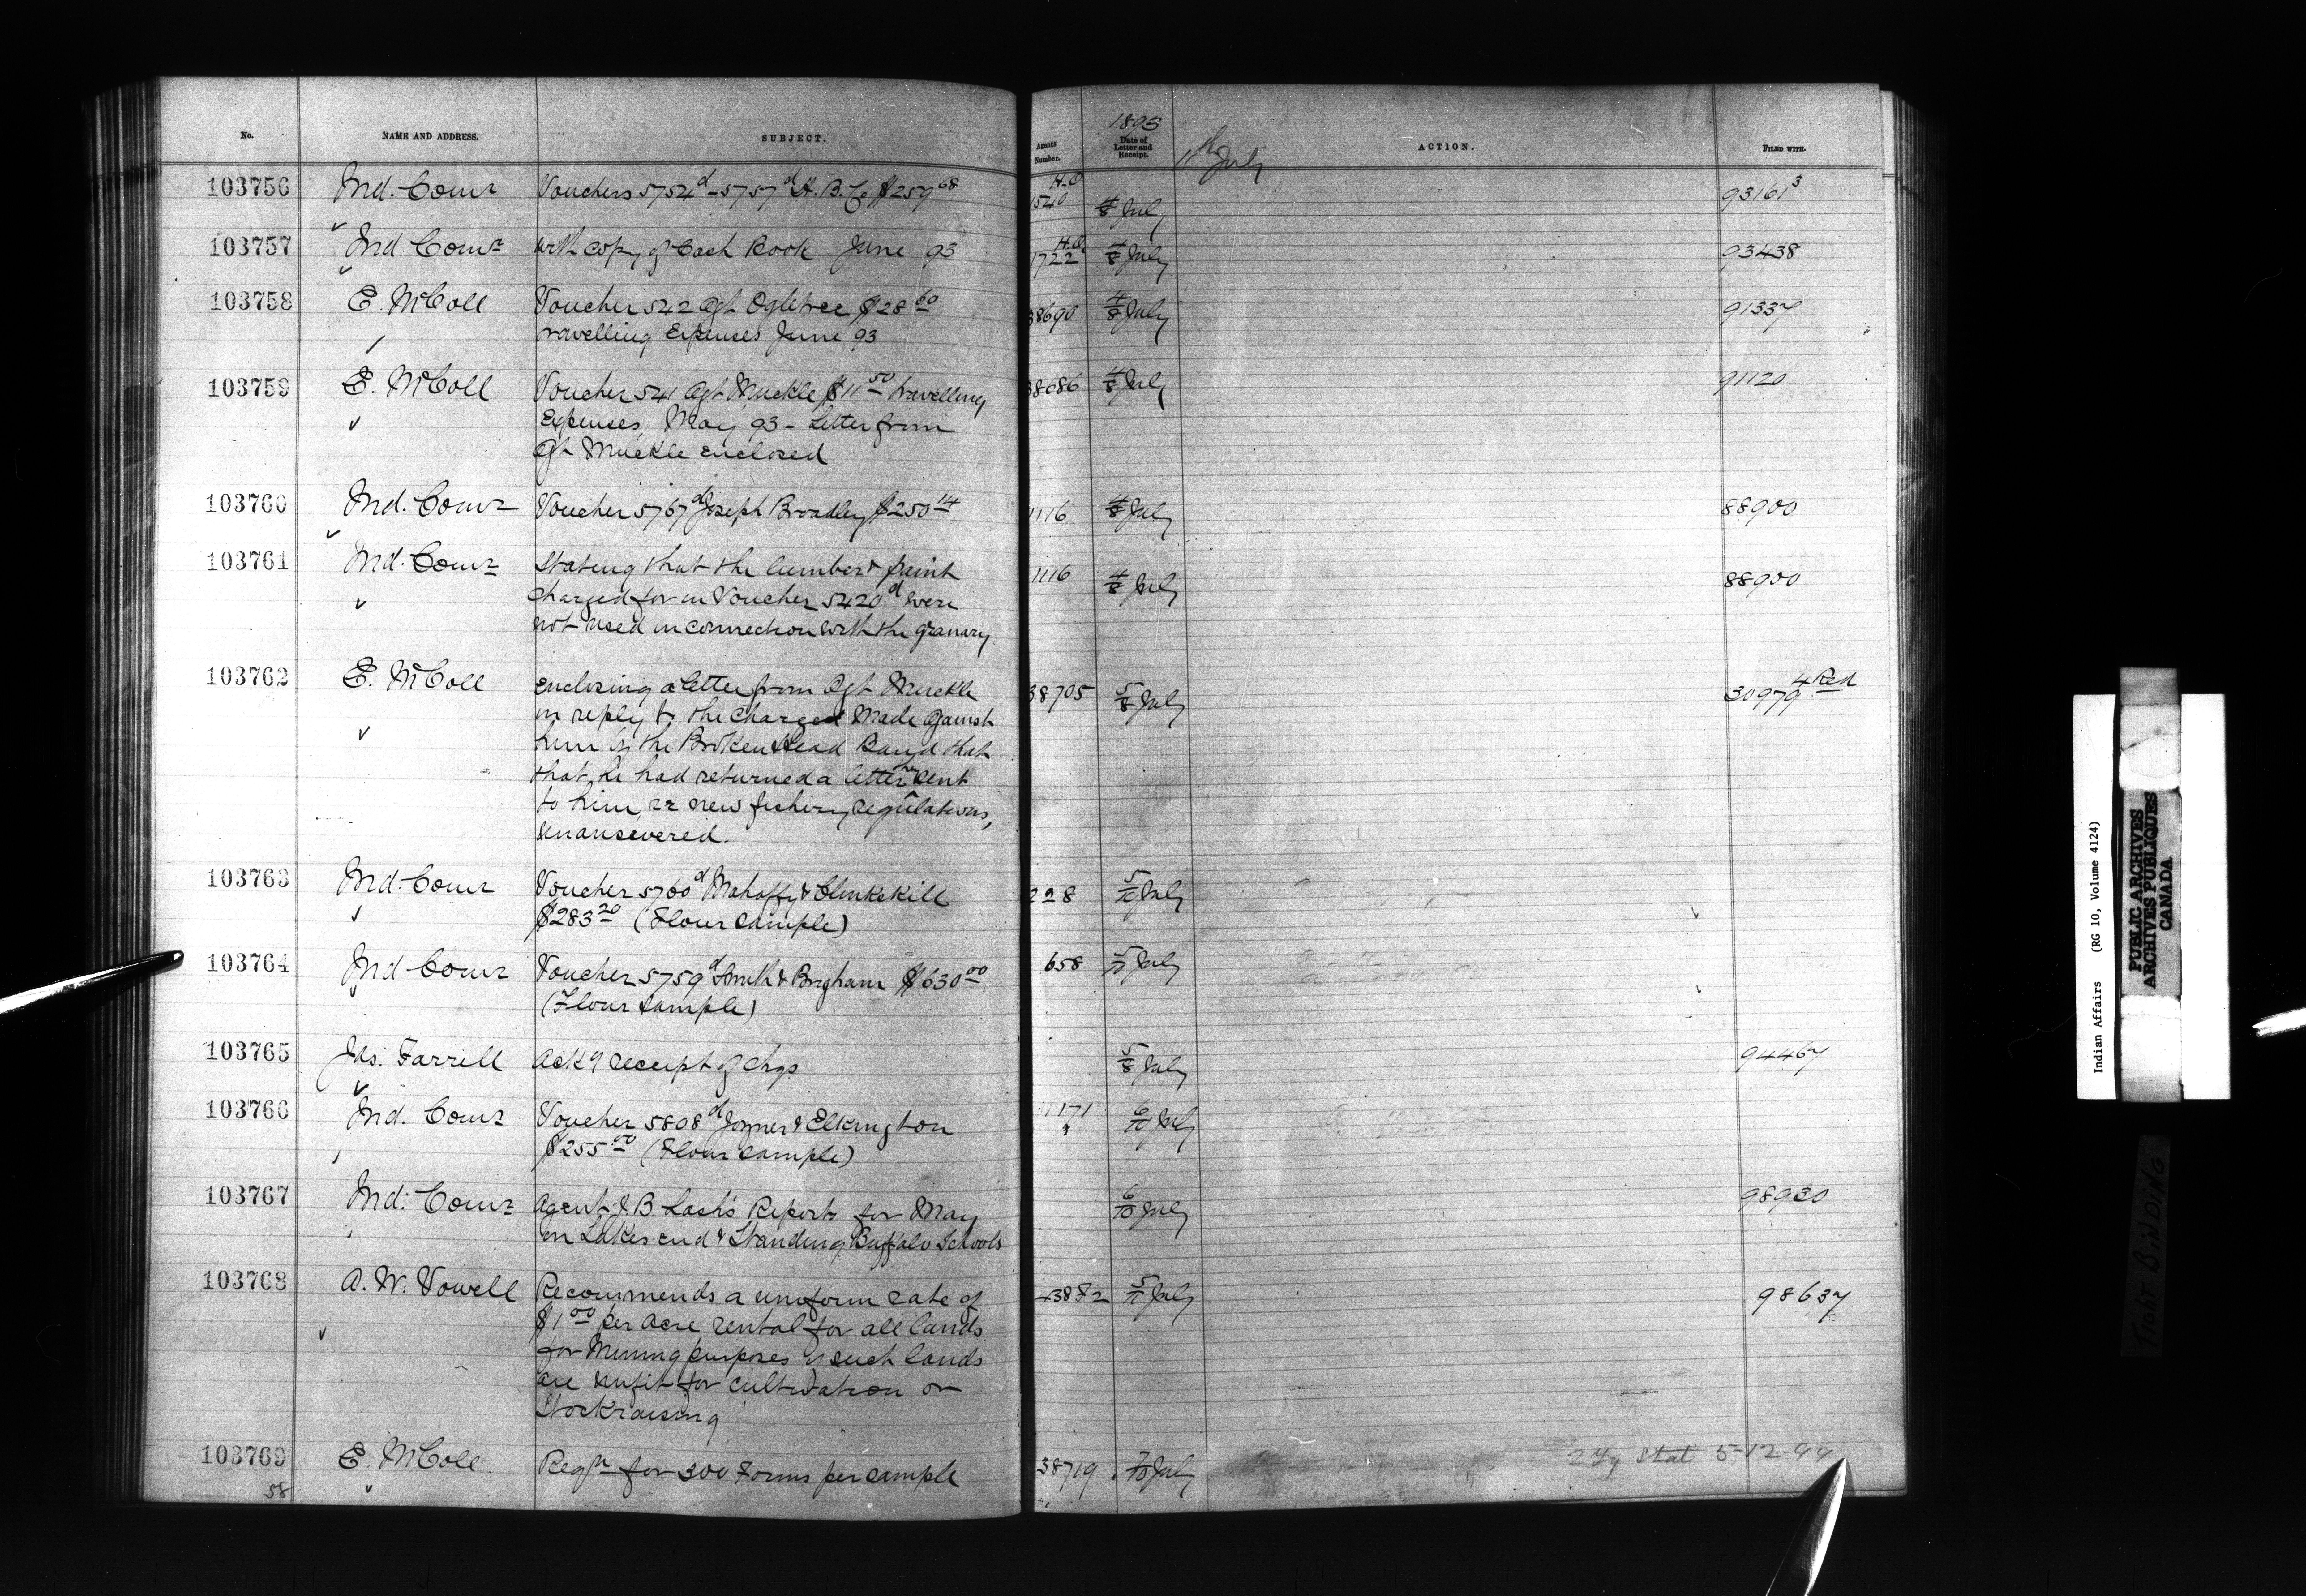 No. NAME AND ADDRESS. SUBJECT. Agents Number. 1893 Date of Letter and Receipt. 11th July ACTION. FILED WITH.
103756 Ind. Comr Vouchers 5754d - 5757d H. B. Co $259 68 1540 H.O. 4/8 July 93161 3
103757 Ind Comr with copy of Cash Book June 93 1722 H.O. 4/8 July 93438
103758 E. McColl Voucher 542 Agt Ogletree $28 60 38690 4/8 July 91337
travelling Expenses June 93
103759 E. McColl Voucher 541 Agt Muckle $11 50 travelling 38686 4/8 July 91120
Expenses May 93 - Letter from
Agt Muckle enclosed
103760 Ind. Comr Voucher 5767d Joseph Broadley $250 14 1116 4/8 July 88900
103761 Ind. Comr Stating that the lumber & paint 1116 4/8 July 88900
charged for in Voucher 5420d were
not used in connection with the granary
103762 E. McColl enclosing a letter from Agt Muckle 38705 5/8 July 30979 4 Red
in reply to the charged made against
him by the Broken Head Band that
that he had returned a letter they sent
to him, re new fishery regulations,
unanswered.
103763 Ind. Comr Voucher 5760d Mahaffy & Clinkskill 228 5/10 July
$283 20 (Flour sample)
103764 Ind Comr Voucher 5759d Smith & Brigham $630 00 658 5/11 July
(Flour sample)
103765 Jas. Farrell Ackg receipt of chqs 5/8 July 94467
103766 Ind. Comr Voucher 5808d Joyner & Elkington 1171 6/10 July
$255 00 (Flour sample)
103767 Ind. Comr Agent J. B. Lash's Reports for May 6/10 July 98930
on Lakes end & Standing Buffalo Schools
103768 A. W. Vowell Recommends a uniform rate of 43882 5/11 July 98637
$1 00 per acre rental for all lands
for Mining purposes if such lands
are unfit for cultivation or
Stockraising
103769 E. McColl Reqn for 300 Forms per sample 38719 7/10 July Stat 5-12-94
58
Indian Affairs (RG 10, Volume 4124)
PUBLIC ARCHIVES
ARCHIVES PUBLIQUES
CANADA
TIGHT BINDING